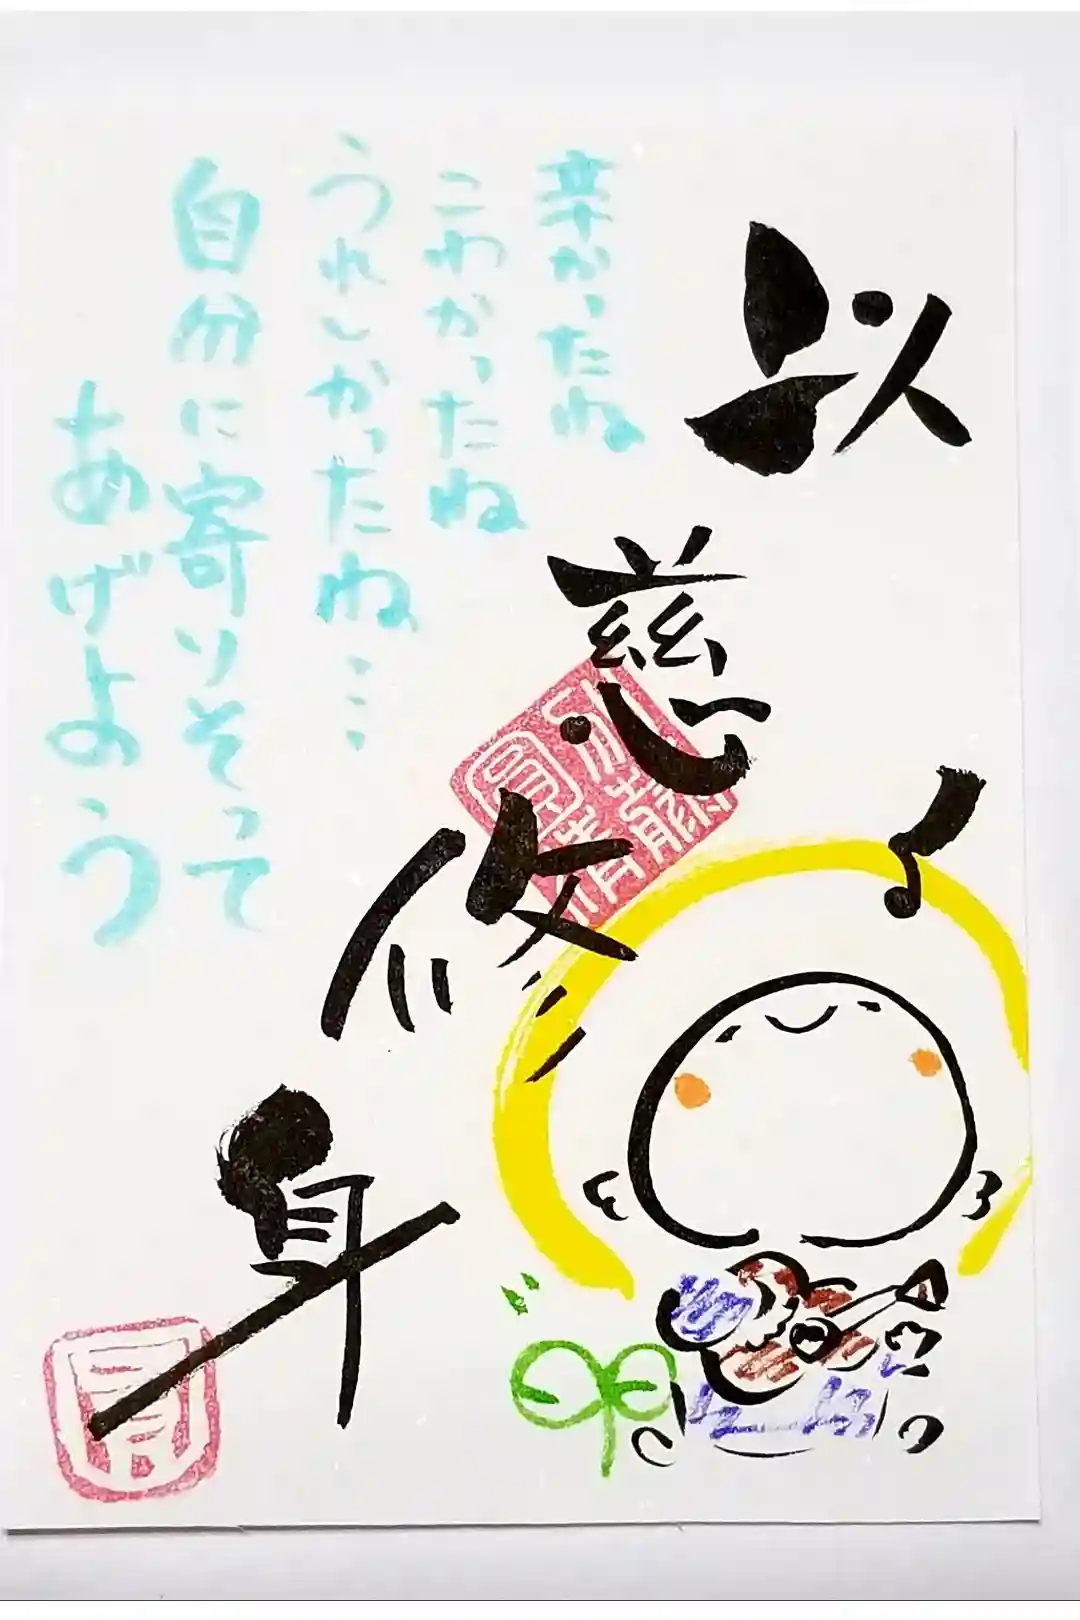 以慈修身
辛かったね
こわかったね
うれしかったね…
自分に寄りそって
あげよう